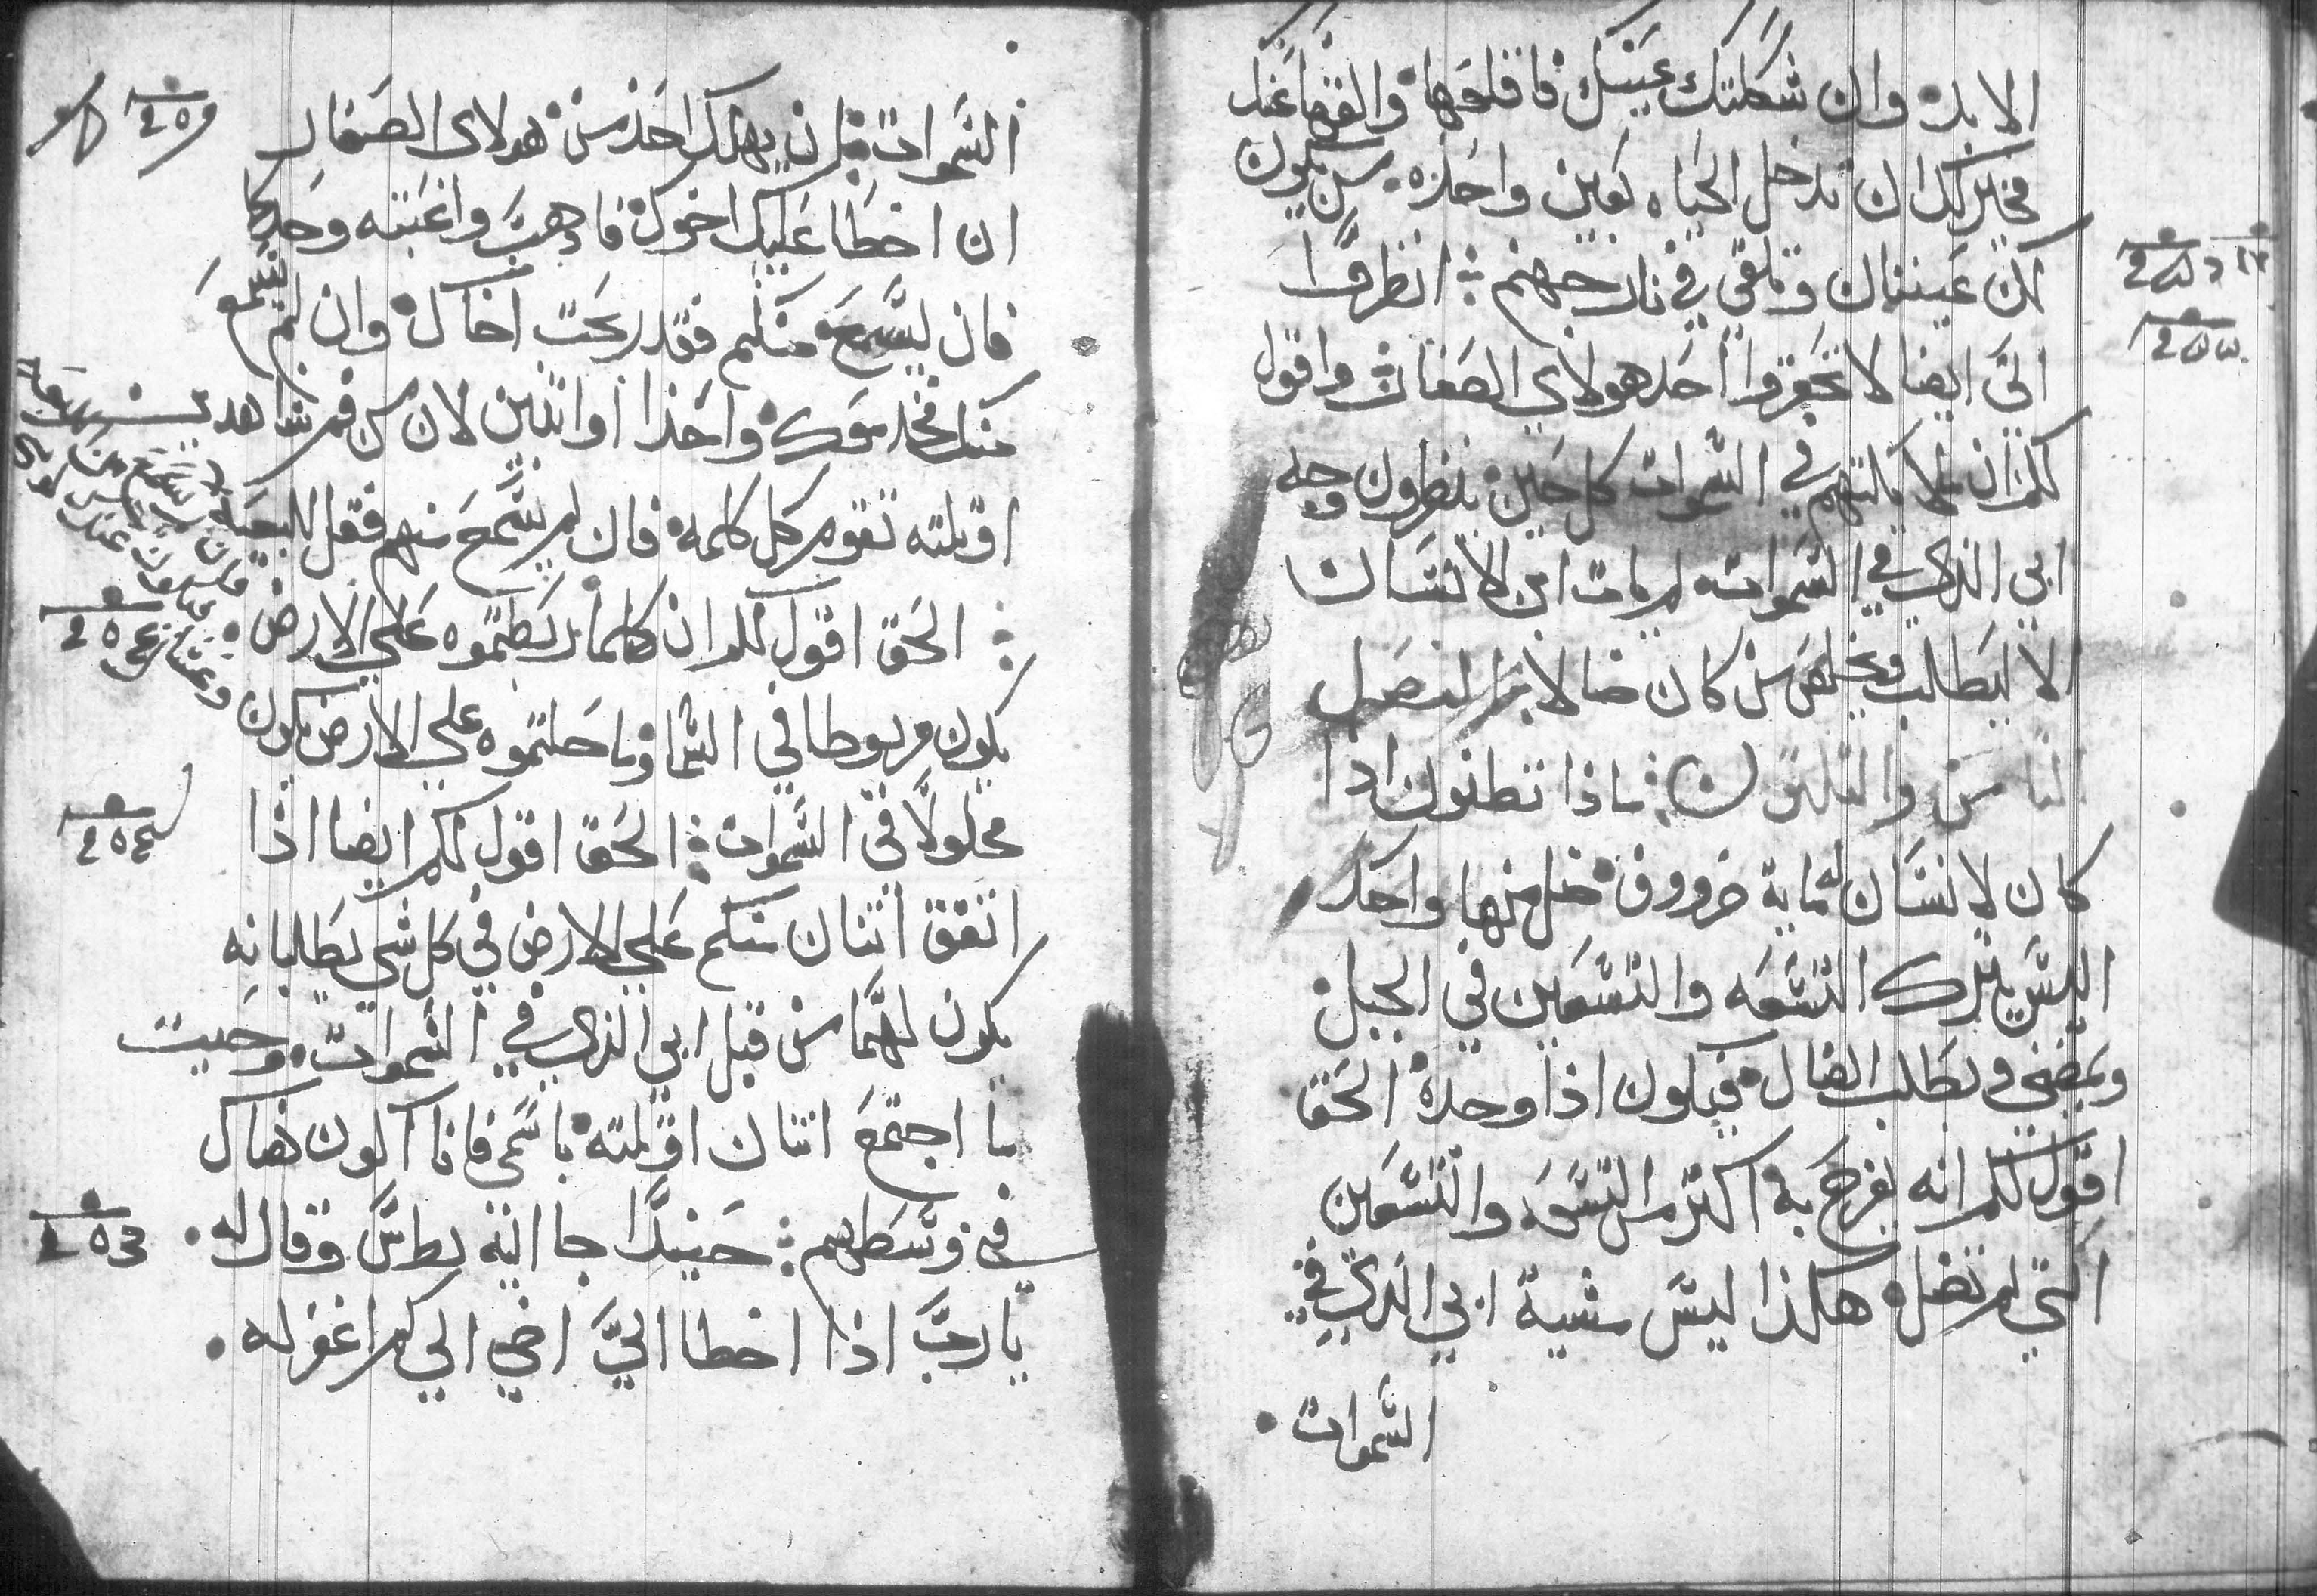 الابد وان شككتك عينك فاقلعها والقها عنك
فخير لك ان تدخل الحياه بعين واحده من ان يكون
لك عينان وتلقي في نار جهنم انظروا
الي ايضا لا تحقروا احد هولاي الصغار واقول
لكم ان ملايكتهم في السموات كل حين ينظرون وجه
ابي الذي في السموات لم يات ابن الانسان
الا ليطلب ويخلص من كان ضالا
ماذا تظنون اذا
كان لانسان ماية خروف فضل منها واحد
اليس يترك التسعه والتسعين في الجبل
ويمضي ويطلب الضال فيكون اذا وجده الحق
اقول لكم انه يفرح به اكثر من التسعه والتسعين
التي لم تضل هكذا ليس مشية ابي الذي في
السموات
السموات ان يهلك احد من هولاي الصغار
ان اخطا عليك اخوك فاذهب واعتبه وحدكما
فان يسمع منكم فقد ربحت اخاك وان لم يسمع
منك فخد معك واحدا او اتنين لان من فم شاهدين
او تلته تقوم كل كلمه فان لم يسمع منهم فقل للبيعه
الحق اقول لكم ان كلما ربطتموه علي الارض
يكون مربوطا في السما وما حلتموه علي الارض يكون
محلولا في السموات الحق اقول لكم ايضا اذا
اتفق اتنان منكم علي الارض في كل شي يطلبانه
يكون لهما من قبل ابي الذي في السموات وحيت
ما اجتمع اتنان او تلته باسمي فانا اكون هناك
في وسطهم حينيدا جا اليه بطرس وقال له
يا رب اذا اخطا الي اخي الي كم اغفر له